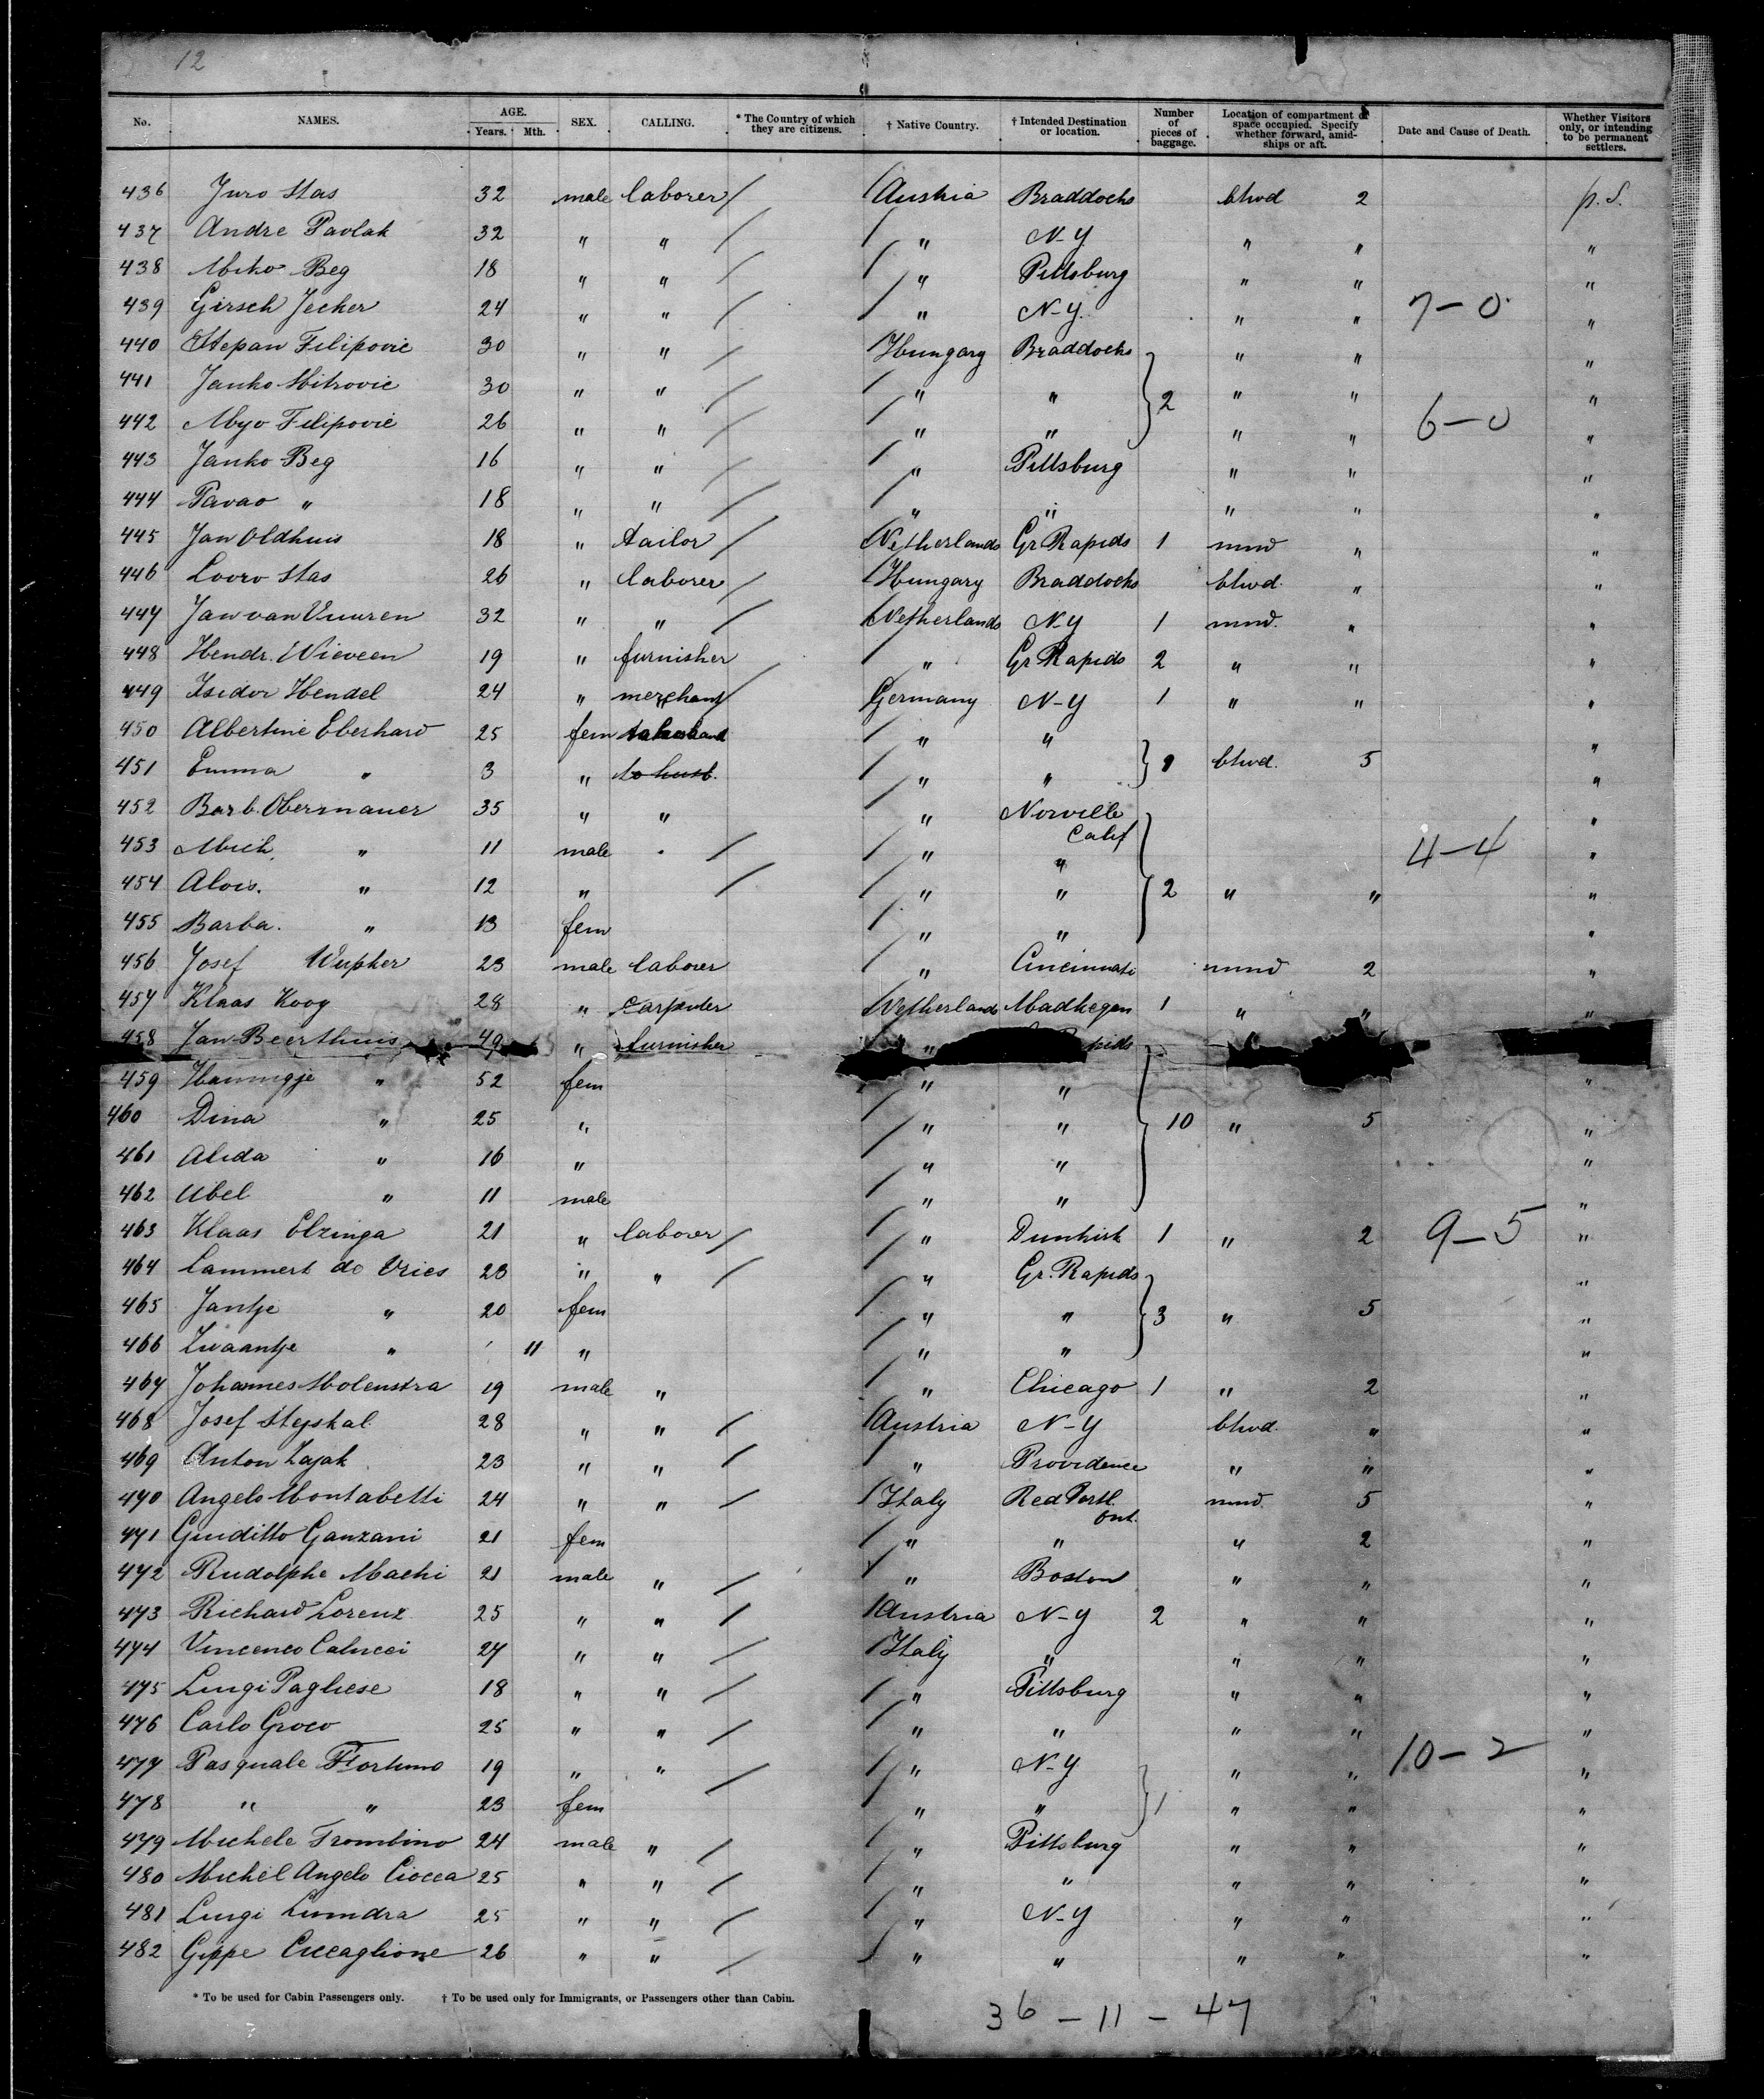 12
No. NAMES. AGE. Years. Mth. SEX. CALLING. * The Country of which they are citizens. † Native Country. † Intended Destination or location. Number of pieces of baggage. Location of compartment or space occupied. Specify whether forward, amidships or aft. Date and Cause of Death. Whether Visitors only, or intending to be permanent settlers.
436 Juro Stas 32 male laborer / / Austria Braddocks btwd 2 p. S.
437 Andre Pavlak 32 " " / / " N-Y " " "
438 Miko Beg 18 " " / / " Pittsburg " " "
439 Girsch Jecker 24 " " / / " N-Y. " " 7-0 "
440 Stepan Filipovic 30 " " / / Hungary Braddocks " " "
441 Janko Mitrovic 30 " " / / " " } 2 " " "
442 Myo Filipovic 26 " " / / " " " " 6-0 "
443 Janko Beg 16 " " / / " Pittsburg " " "
444 Pavao " 18 " " / / " " " " "
445 Jan Oldhuis 18 " tailor / / Netherlands Gr Rapids 1 mnd " "
446 Lovro Stas 26 " laborer / / Hungary Braddocks btwd. " "
447 Jan van Vuuren 32 " " / / Netherlands N-Y 1 mnd. " "
448 Hendr. Wieveen 19 " furnisher / " Gr Rapids 2 " " "
449 Isidor Hendel 24 " merchant / Germany N-Y 1 " " "
450 Albertine Eberhard 25 fem / " " "
451 Emma " 3 " to husb. / " " } btwd. 5 "
452 Barb. Obermauer 35 " " " Norville Calif "
453 Mich. " 11 male / / " " 4-4 "
454 Alois. " 12 " / / " " } 2 " " "
455 Barba. " 13 fem / " " "
456 Josef Wupker 23 male laborer / " Cincinnati mnd 2 "
457 Klaas Koog 28 " carpenter / Netherlands 1 " " "
458 Jan Beerthuis 49 " furnisher " pids
459 " 52 fem " " "
460 Dina " 25 " / " " } 10 " 5 "
461 Alida " 16 " / " " "
462 Ubel " 11 male / " " "
463 Klaas Elzinga 21 " laborer / / " Dunkirk 1 " 2 9-5 "
464 Lammert de Vries 23 " " / / " Gr. Rapids "
465 Jantje " 20 fem / " " } 3 " 5 "
466 Zwaantje " 11 " / " " "
467 Johannes Molenstra 19 male " / " Chicago 1 " 2 "
468 Josef Stejskal 28 " " / / Austria N-Y btwd. " "
469 Anton Zajak 23 " " / / " Providence " " "
470 Angelo Montabetti 24 " " / / Italy Red Portl. Ont. mnd. 5 "
471 Guiditto Ganzani 21 fem / " " " 2 "
472 Rudolphe Machi 21 male " / / " Boston " " "
473 Richard Lorenz 25 " " / / Austria N-Y 2 " " "
474 Vincenco Calucci 27 " " / / Italy " " " "
475 Luigi Pagliese 18 " " / / " Pittsburg " " "
476 Carlo Groco 25 " " / / " " " " "
477 Pasquale Fortuno 19 " " / / " N-Y " " 10-2 "
478 " " 23 fem / " " } 1 " " "
479 Michele Trombino 24 male " / / " Pittsburg " " "
480 Michel Angelo Ciocca 25 " " / / " " " " "
481 Luigi 25 " " / / " N-Y " " "
482 Gippe Cucaglione 26 " " / / " " " " "
* To be used for Cabin Passengers only. † To be used only for Immigrants, or Passengers other than Cabin.
36 - 11 - 47